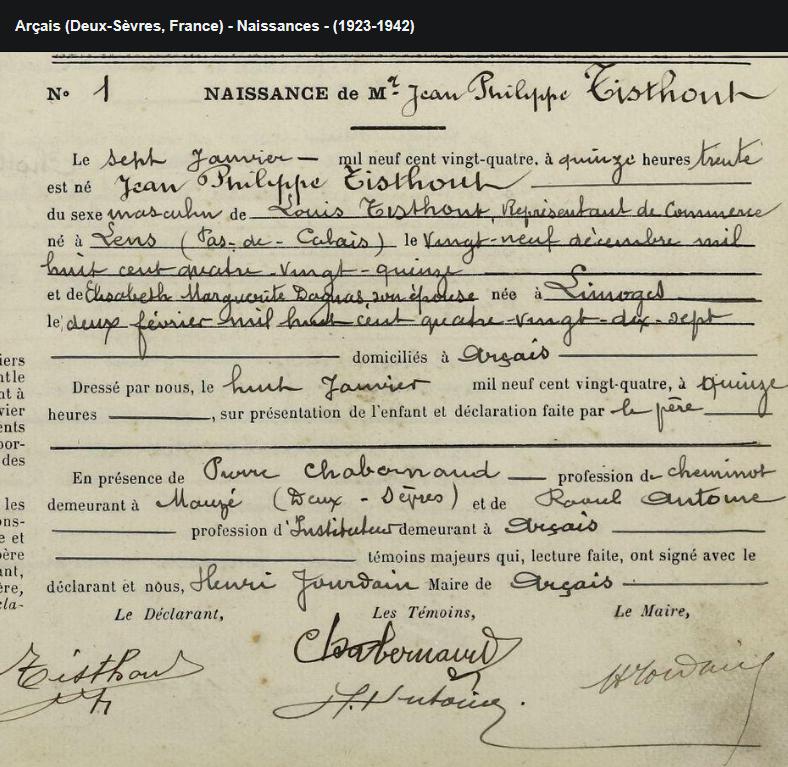 Arçais (Deux-Sèvres, France) - Naissances - (1923-1942)
N° 1 NAISSANCE de Mr Jean Philippe Tisthout
Le sept Janvier — mil neuf cent vingt-quatre, à quinze heures trente
est né Jean Philippe Tisthout
du sexe masculin de Louis Tisthout, Représentant de Commerce
né à Lens (Pas-de-Calais) le vingt-neuf décembre mil
huit cent quatre-vingt-quinze
et de Elisabeth Marguerite Dagnas son épouse née à Limoges
le deux février mil huit cent quatre-vingt-dix-sept
domiciliés à Arçais
Dressé par nous, le huit Janvier mil neuf cent vingt-quatre, à quinze
heures , sur présentation de l'enfant et déclaration faite par le père
En présence de Pierre Chabernaud — profession de cheminot
demeurant à Mauzé (Deux-Sèvres) et de Raoul Antoine
profession d'Instituteur demeurant à Arçais
témoins majeurs qui, lecture faite, ont signé avec le
déclarant et nous, Henri Jourdain Maire de Arçais
Le Déclarant, Les Témoins, Le Maire,
Tisthout Chabernaud HJourdain
Antoine
iers
ntle
nt à
vier
ents
por-
des
les
ons-
e et
père
ant,
ère,
cla-